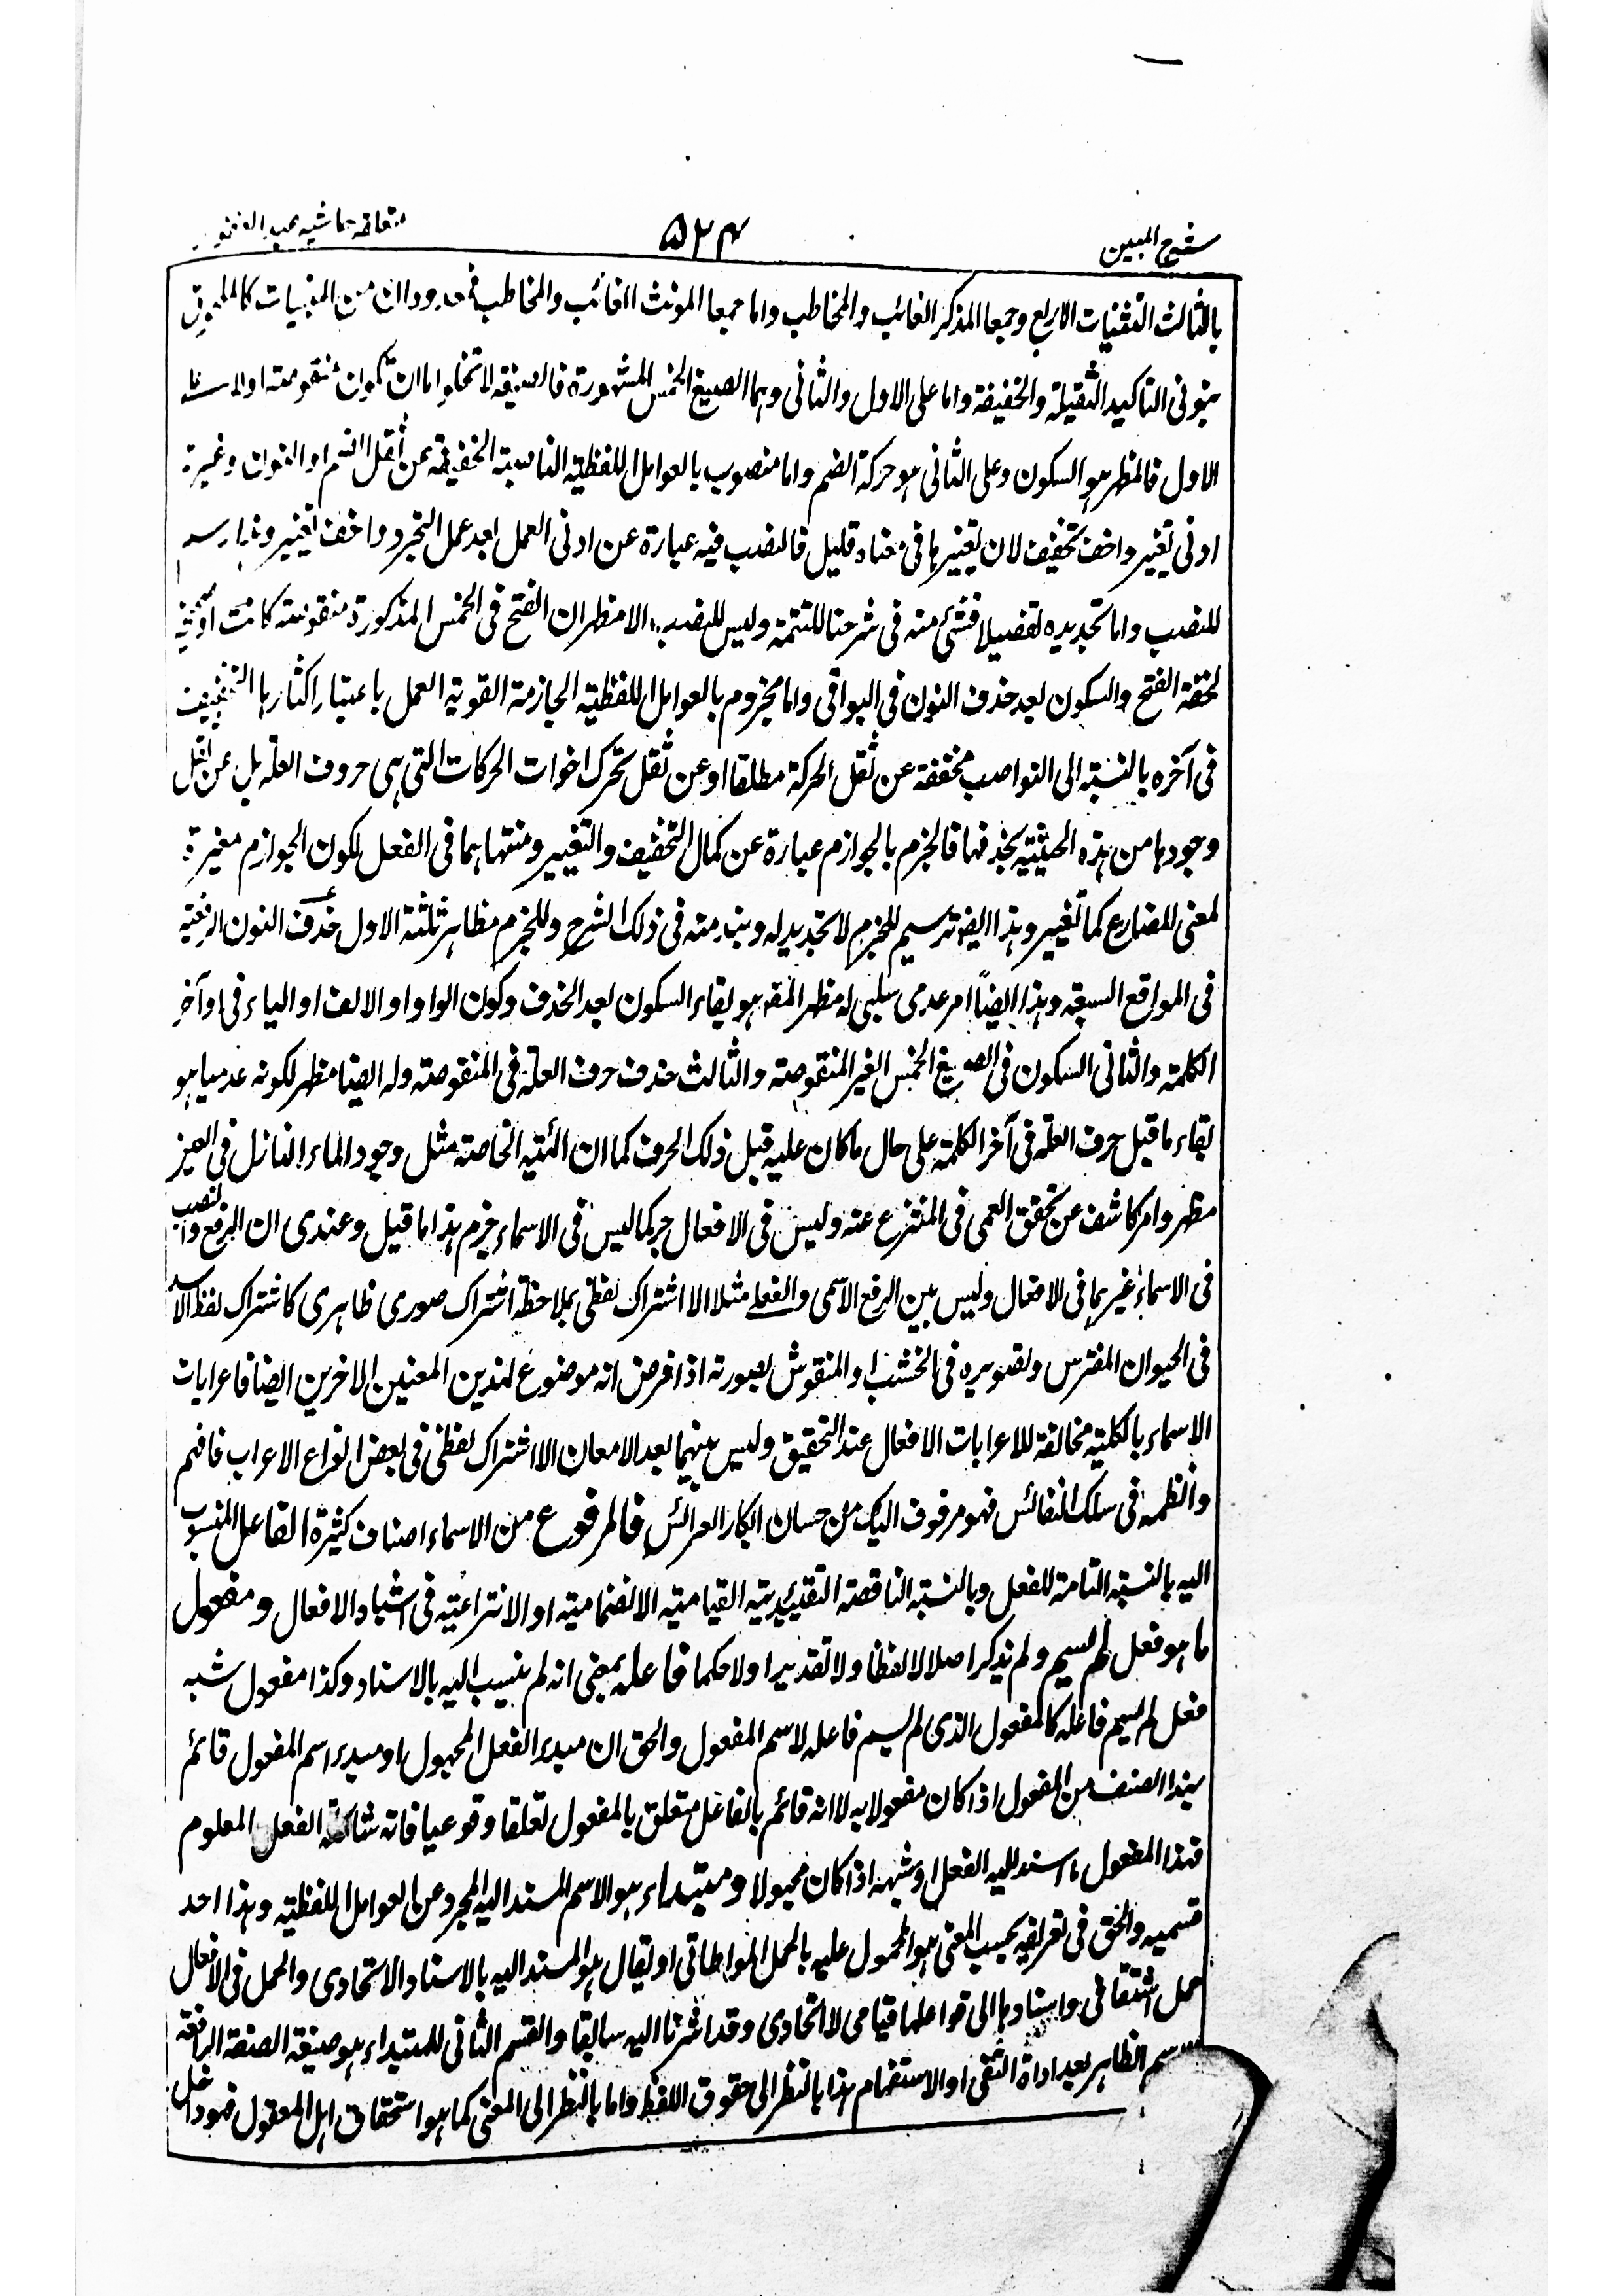 المبين ۵۲۴
بالثالث التثنيات الاربع وجمعا المذكر الغائب والمخاطب واما جمعا المونث الغائب والمخاطب فمعدودان من المبنيات كالملحق
بنونى التاكيد الثقيلة والخفيفة واما على الاول والثانى وهما الصيغ الخمس المشهورة فالصيغة لاتخلو اما ان تكون منقوصة اولا
الاول فالمظهر هو السكون وعلى الثانى هو حركة الضم واما منصوب بالعوامل اللفظية الناصبة الخفيفة عن اثقل الضم او النون وغيره
ادنى تغيير واخف تخفيف لان تغييرها فى معناه قليل فالنصب فيه عبارة عن ادنى العمل بعد عمل التجرد واخف تغيير وهذا رسم
للنصب واما تحديده تفصيلا فشئ منه فى شرحنا للتتمة وليس للنصب الا مظهران الفتح فى الخمس المذكورة منقوصة كانت او غيره
لخفة الفتح والسكون بعد حذف النون فى البواقى واما مجزوم بالعوامل اللفظية الجازمة القوية العمل باعتبار اكثارها التخفيف
فى آخره بالنسبة الى النواصب مخففة عن ثقل الحركة مطلقا او عن ثقل تحرك اخوات الحركات التى هى حروف العلة بل عن ثقل
وجودها من هذه الحيثية بحذفها فالجزم بالجوازم عبارة عن كمال التخفيف والتغيير ومنتهاهما فى الفعل لكون الجوازم مغيرة
لمعنى المضارع كما تغيير وهذا ايضا ترسيم للجزم لاتحديد له ونبذ منه فى ذلك الشرح وللجزم مظاهر ثلثة الاول حذف النون الرفعية
فى المواقع السبعة وهذا ايضاً امر عدمى سلبى له مظهر المقه هو بقاء السكون بعد الحذف وكون الواو او الالف او الياء فى اواخر
الكلمة والثانى السكون فى الصيغ الخمس الغير المنقوصة والثالث حذف حرف العلة فى المنقوصة وله ايضا مظهر لكونه عدميا هو
بقاء ما قبل حرف العلة فى آخر الكلمة على حال ماكان عليه قبل ذلك الحرف كما ان الخاصة مثل وجود الماء النازل فى العين
مظهر وامر كاشف عن تحقق العمى فى المنتزع عنه وليس فى الافعال جر كما ليس فى الاسماء جزم هذا ما قيل وعندى ان الرفع والنصب
فى الاسماء غيرهما فى الافعال وليس بين الرفع الاسمى والفعلى مثلا الا اشتراك لفظى بملاحظة اشتراك صورى ظاهرى كاشتراك لفظ الاسد
فى الحيوان المفترس وتصويره فى الخشب او المنقوش بصورته اذا فرض انه موضوع لهذين المعنيين الاخرين ايضا فاعرابات
الاسماء بالكلية مخالفة للاعرابات الافعال عند التحقيق وليس بينهما بعد الامعان الا اشتراك لفظى فى بعض انواع الاعراب فافهم
وانظمه فى سلك النفائس فهو مزفوف اليك من حسان ابكار العرائس فالمرفوع من الاسماء اصناف كثيرة الفاعل المنسوب
اليه بالنسبة التامة للفعل وبالنسبة الناقصة التقييدية القيامية الانضمامية او الانتزاعية فى اشباه الافعال ومفعول
ما هو فعل لم يسم ولم يذكر اصلا لا لفظا ولا تقديرا ولا حكما فاعله بمعنى انه لم ينسب اليه بالاسناد وكذا مفعول شبه
فعل لم يسم فاعله كالمفعول الذى لم يسم فاعله لاسم المفعول والحق ان مبدء الفعل المجهول او مبدء اسم المفعول قائم
بهذا الصنف من المفعول اذا كان مفعولا به لا انه قائم بالفاعل متعلق بالمفعول تعلقا وقوعيا فانه شاكلة الفعل المعلوم
فهذا المفعول ما اسند اليه الفعل او شبهه اذا كان مجهولا ومبتداء هو الاسم المسند اليه المجرد عن العوامل اللفظية وهذا احد
قسميه والحق فى تعريفه بحسب المعنى هو المحمول عليه بالحمل المواطاتى او يقال هو المسند اليه بالاسناد الاتحادى والحمل فى الافعال
حمل اشتقاقى واسنادها الى فواعلها قيامى لا اتحادى وقد اشرنا اليه سابقا والقسم الثانى للمبتداء هو صيغة الصفة الرافعة
الظاهر بعد اداة النفى او الاستفهام هذا بالنظر الى حقوق اللفظ واما بالنظر الى المعنى كما هو استحقاق اهل المعقول فهو داخل